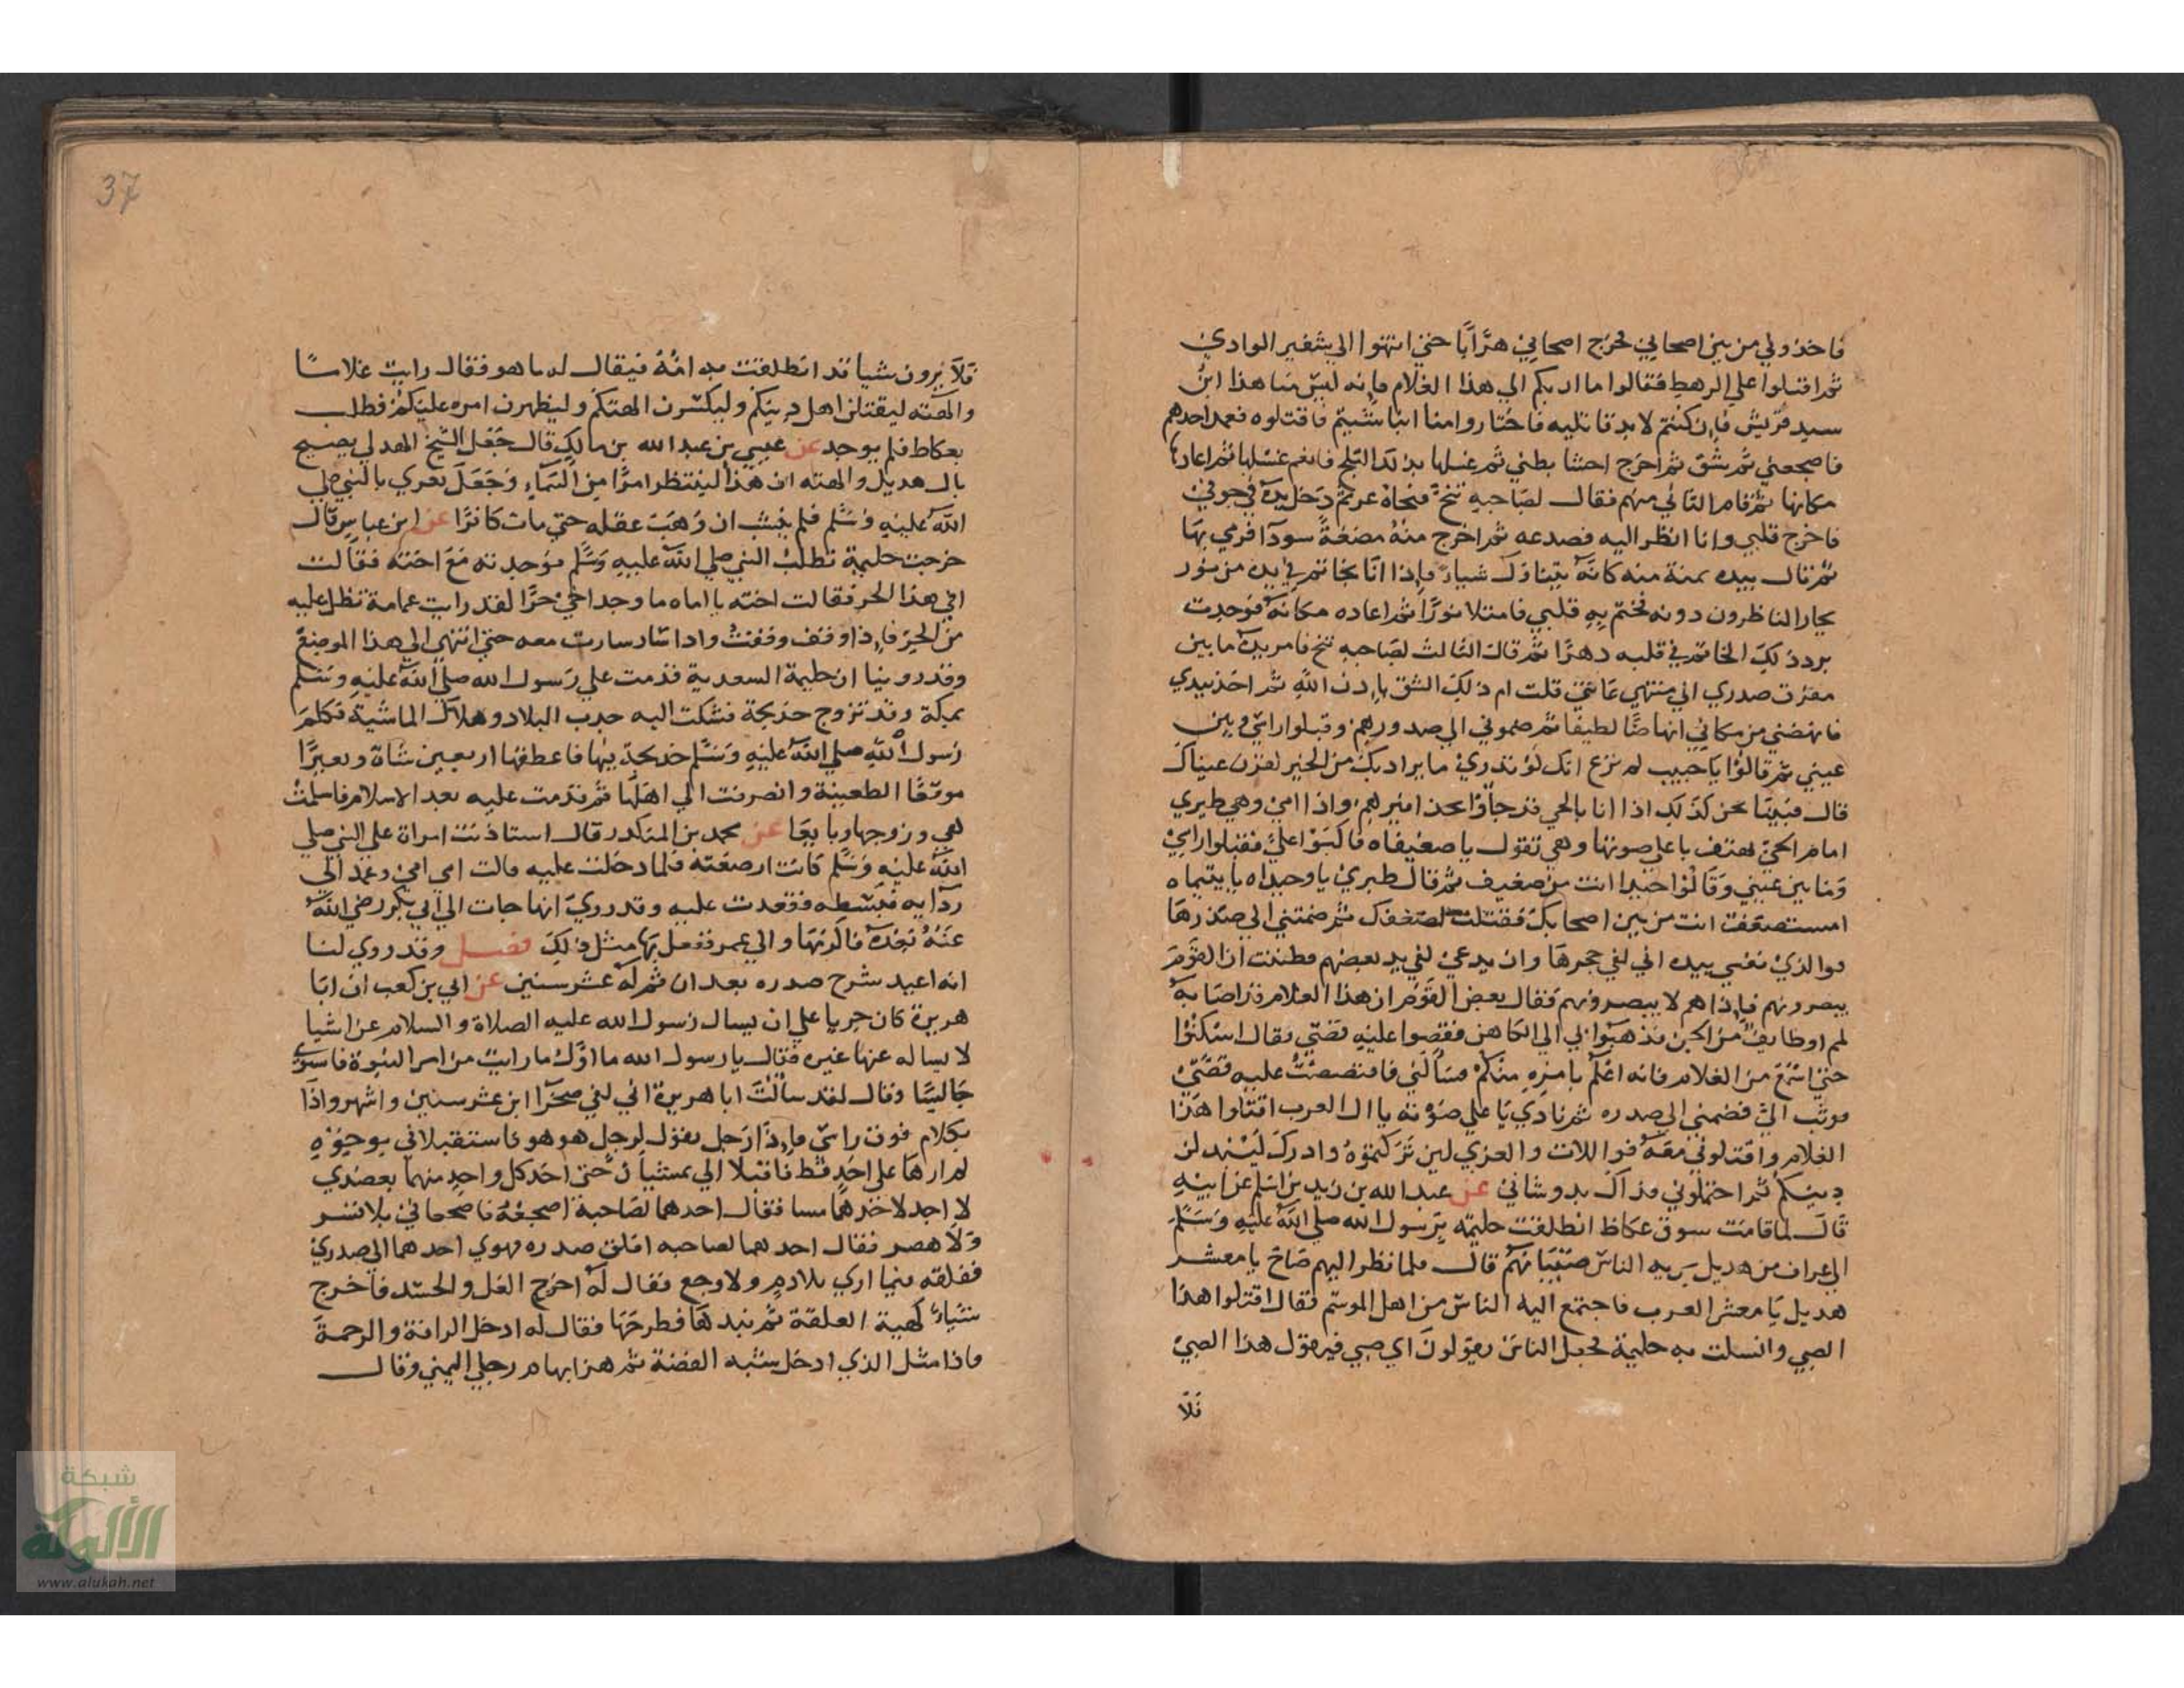 فاخذوني من بين اصحابي فخرج اصحابي هرَّابًا حتي انتهوا الي شفير الوادي
ثم اقبلوا علي الرهط فقالوا ما اربكم الي هذا الغلام فانه ليس منا هذا ابن
سيد قريش فان كنتم لابد قاتليه فاختاروا منا اينا شيتم فاقتلوه فعمد احدهم
فاضجعني ثم شق ثم اخرج احشا بطني ثم غسلها بذلك الثلج فانعم غسلها ثم اعادها
مكانها ثم قام الثاني منهم فقال لصاحبه تنح فنحاه عني ثم دخل يده في جوفي
فاخرج قلبي وانا انظر اليه فصدعه ثم اخرج منه مضغة سودآ فرمي بها
ثم قال بيده يمنة منه كانه يتناول شياء فاذا انا بخاتم في يده من نور
يحار الناظرون دونه فختم به قلبي فامتلا نورًا ثم اعاده مكانه فوجدت
برد ذلك الخاتم في قلبه دهرًا ثم قال الثالث لصاحبه تنح فامر يده ما بين
مفرق صدري الي منتهي عانتي قلت ام ذلك الشق باذن الله ثم اخذ بيدي
فانهضني من مكاني انهاضًا لطيفا ثم ضموني الي صدورهم وقبلوا راسي وبين
عيني ثم قالوا يا حبيب لم ترع انك لو تدري ما يراد بك من الخير لقرت عيناك
قال فبينا نحن كذلك اذا انا بالحي قد جاؤا بحذافيرهم واذا امي وهي طيري
امام الحي تهتف باعلي صوتها وهي تقول يا ضعيفاه فاكبوا علي فقبلوا راسي
وما بين عيني وقالوا حبذا انت من ضعيف ثم قال طيري يا وحيداه يا يتيماه
استضعفت انت من بين اصحابك فقتلت لضعفك ثم ضمتني الي صدرها
فوالذي نفسي بيده اني لفي حجرها وان يدي لفي يد بعضهم فظننت ان القوم
يبصرونهم فاذا هم لا يبصرونهم فقال بعض القوم ان هذا الغلام قد اصابه
لمم او طايف من الجن فذهبوا بي الي الكاهن فقصوا عليه قصتي فقال اسكتوا
حتي اسمع من الغلام فانه اعلم بامره منكم فسألني فاقتصصت عليه قصتي
فوثب الي فضمني الي صدره ثم نادي يا علي صوته يا ال العرب اقتلوا هذا
الغلام واقتلوني معه فواللات والعزي لين تركتموه وادرك ليبدلن
دينكم ثم احتملوني فذاك بدو شاني عن عبد الله بن زيد بن اسلم عن ابيه
قال لما قامت سوق عكاظ انطلقت حليمة برسول الله صلي الله عليه وسلم
الي عراف من هديل يريه الناس صبيانهم قال فلما نظر اليهم صاح يا معشر
هديل يا معشر العرب فاجتمع اليه الناس من اهل الموسم فقال اقتلوا هذا
الصبي وانسلت به حليمة فجعل الناس يقولون اي صبي فيقول هذا الصبي
فلا
37
فلا يرون شيا قد انطلقت به امه فيقال له ما هو فقال رايت غلامًا
والهته ليقتلن اهل دينكم وليكسرن الهتكم وليظهرن امره عليكم فطلب
بعكاط فلم يوجد عن عيسي بن عبد الله بن مالك قال جعل الشيخ الهدلي يصيح
يال هديل والهته ان هذا لينتظر امرًا من السماء وجعل يغري بالنبي صلي
الله عليه وسلم فلم ينشب ان ذهب عقله حتي مات كافرًا عن ابن عباس قال
خرجت حليمة تطلب النبي صلي الله عليه وسلم فوجدته مع اخته فقالت
افي هذا الحر فقالت اخته يا اماه ما وجد اخي حرًا لقد رايت غمامة تظل عليه
من الحر فاذا وقف وقفت واذا سار سارت معه حتي انتهي الي هذا الموضع
وقد روينا ان حليمة السعدية قدمت علي رسول الله صلي الله عليه وسلم
بمكة وقد تزوج خديجة فشكت اليه جدب البلاد وهلاك الماشية فكلم
رسول الله صلي الله عليه وسلم خديجة فيها فاعطفها اربعين شاة وبعيرًا
موقعًا الظعينة وانصرفت الي اهلها ثم قدمت عليه بعد الاسلام فاسلمت
هي وزوجها وبايعا عن محمد بن المنكدر قال استاذنت امراة علي النبي صلي
الله عليه وسلم كانت ارضعته فلما دخلت عليه قالت امي امي وعمد الي
ردآيه فبسطه فقعدت عليه وقد روي انها جات الي ابي بكر رضي الله
عنه بعده فاكرمها والي عمر ففعل بها مثل ذلك فصل وقد روي لنا
انه اعيد شرح صدره بعد ان تم له عشر سنين عن ابي بن كعب ان ابا
هريرة كان جريا علي ان يسال رسول الله عليه الصلاة والسلام عن اشيا
لا يساله عنها غيره فقال يا رسول الله ما اول ما رايت من امر النبوة فاستوي
جالسًا وقال لقد سالت ابا هريرة اني لفي صحرا ابن عشر سنين واشهر واذا
بكلام فوق راسي فاذا رجل يقول لرجل هو هو فاستقبلاني بوجوه
لم ارها علي احد قط فاقبلا الي يمشيان حتي اخذ كل واحد منهما بعضدي
لا اجد لاخذهما مسا فقال احدهما لصاحبه اضجعه فاضجعاني بلا قسر
ولا هصر فقال احدهما لصاحبه افلق صدره فهوي احدهما الي صدري
ففلقه فيما اري بلا دم ولا وجع فقال له اخرج الغل والحسد فاخرج
شياء كهية العلقة ثم نبدها فطرحها فقال له ادخل الرافة والرحمة
فاذا مثل الذي ادخل يشبه الفضة ثم هز ابهام رجلي اليمني وقال
شبكة
الألوكة
www.alukah.net